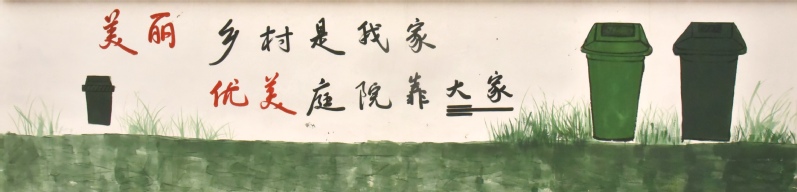 美丽 乡村是我家
优美庭院靠大家